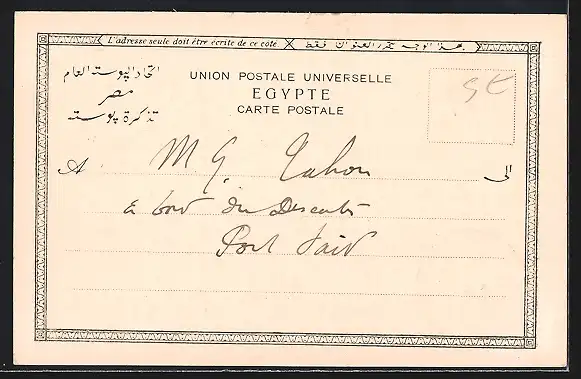 L'adresse seule doit être écrite de ce côté.
بهذا الوجه يحرر العنوان فقط
اتحاد البوسته العام
مصر
تذكرة بوسته
UNION POSTALE UNIVERSELLE
EGYPTE
CARTE POSTALE
5 €
A M G.
الى
à bord du
Port Said